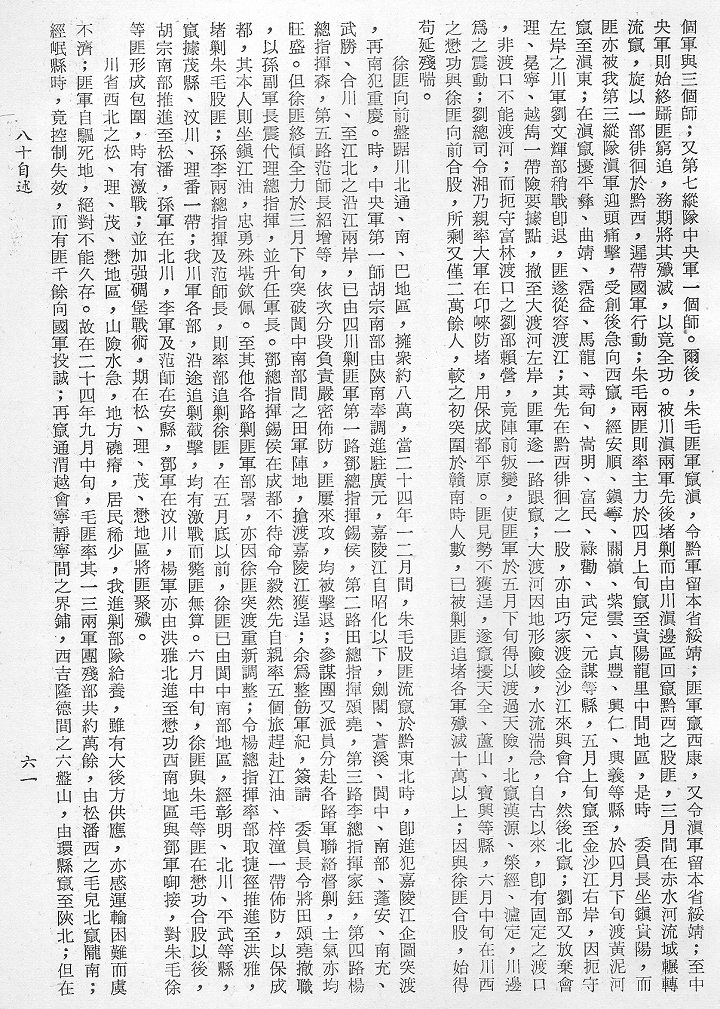 個軍與三個師；又第七縱隊中央軍一個師。爾後，朱毛匪軍竄滇，令黔軍留本省綏靖；匪軍竄西康，又令滇軍留本省綏靖；至中
央軍則始終躡匪窮追，務期將其殲滅，以竟全功。被川滇兩軍先後堵剿而由川滇邊區回竄黔西之股匪，三月間在赤水河流域輾轉
流竄，旋以一部徘徊於黔西，遲帶國軍行動；朱毛兩匪則率主力於四月上旬竄至貴陽龍里中間地區，是時　委員長坐鎮貴陽，而
匪亦被我第三縱隊滇軍迎頭痛擊，受創後急向西竄，經安順、鎮寧、關嶺、紫雲、貞豐、興仁、興義等縣，於四月下旬渡黃泥河
竄至滇東；在滇竄擾平彝、曲靖、霑益、馬龍、尋甸、嵩明、富民、祿勸、武定、元謀等縣，五月上旬竄至金沙江右岸，因扼守
左岸之川軍劉文輝部稍戰卽退，匪遂從容渡江；其先在黔西徘徊之一股，亦由巧家渡金沙江來與會合，然後北竄；劉部又放棄會
理、冕寧、越嶲一帶險要據點，撤至大渡河左岸，匪軍遂一路跟竄；大渡河因地形險峻，水流湍急，自古以來，卽有固定之渡口
，非渡口不能渡河；而扼守富林渡口之劉部賴營，竟陣前叛變，使匪軍於五月下旬得以渡過天險，北竄漢源、滎經、瀘定，川邊
爲之震動；劉總司令湘乃親率大軍在邛崍防堵，用保成都平原。匪見勢不獲逞，遂竄擾天全、蘆山、寶興等縣，六月中旬在川西
之懋功與徐匪向前合股，所剩又僅二萬餘人，較之初突圍於贛南時人數，已被剿匪追堵各軍殲滅十萬以上；因與徐匪合股，始得
苟延殘喘。
徐匪向前盤踞川北通、南、巴地區，擁衆約八萬，當二十四年一二月間，朱毛股匪流竄於黔東北時，卽進犯嘉陵江企圖突渡
，再南犯重慶。時，中央軍第一師胡宗南部由陝南奉調進駐廣元，嘉陵江自昭化以下，劍閣、蒼溪、閬中、南部、蓬安、南充、
武勝、合川、至江北之沿江兩岸，已由四川剿匪軍第一路鄧總指揮錫侯，第二路田總指揮頌堯，第三路李總指揮家鈺，第四路楊
總指揮森，第五路范師長紹增等，依次分段負責嚴密佈防，匪屢來攻，均被擊退；參謀團又派員分赴各路軍聯絡督剿，士氣亦均
旺盛。但徐匪終傾全力於三月下旬突破閬中南部間之田軍陣地，搶渡嘉陵江獲逞；余爲整飭軍紀，簽請　委員長令將田頌堯撤職
，以孫副軍長震代理總指揮，並升任軍長。鄧總指揮錫侯在成都不待命令毅然先自親率五個旅趕赴江油、梓潼一帶佈防，以保成
都，其本人則坐鎮江油，忠勇殊堪欽佩。至其他各路剿匪軍部署，亦因徐匪突渡重新調整；令楊總指揮率部取捷徑推進至洪雅，
堵剿朱毛股匪；孫李兩總指揮及范師長，則率部追剿徐匪，在五月底以前，徐匪已由閬中南部地區，經彰明、北川、平武等縣，
竄據茂縣、汶川、理番一帶；我川軍各部，沿途追剿截擊，均有激戰而斃匪無算。六月中旬，徐匪與朱毛等匪在懋功合股以後，
胡宗南部推進至松潘，孫軍在北川，李軍及范師在安縣，鄧軍在汶川，楊軍亦由洪雅北進至懋功西南地區與鄧軍啣接，對朱毛徐
等匪形成包圍，時有激戰；並加强碉堡戰術，期在松、理、茂、懋地區將匪聚殲。
川省西北之松、理、茂、懋地區，山險水急，地方磽瘠，居民稀少，我進剿部隊給養，雖有大後方供應，亦感運輸困難而虞
不濟；匪軍自驅死地，絕對不能久存。故在二十四年九月中旬，毛匪率其一三兩軍團殘部共約萬餘，由松潘西之毛兒北竄隴南；
經岷縣時，竟控制失效，而有匪千餘向國軍投誠；再竄通渭越會寧靜寧間之界鋪，西吉隆德間之六盤山，由環縣竄至陝北；但在
八十自述
六一